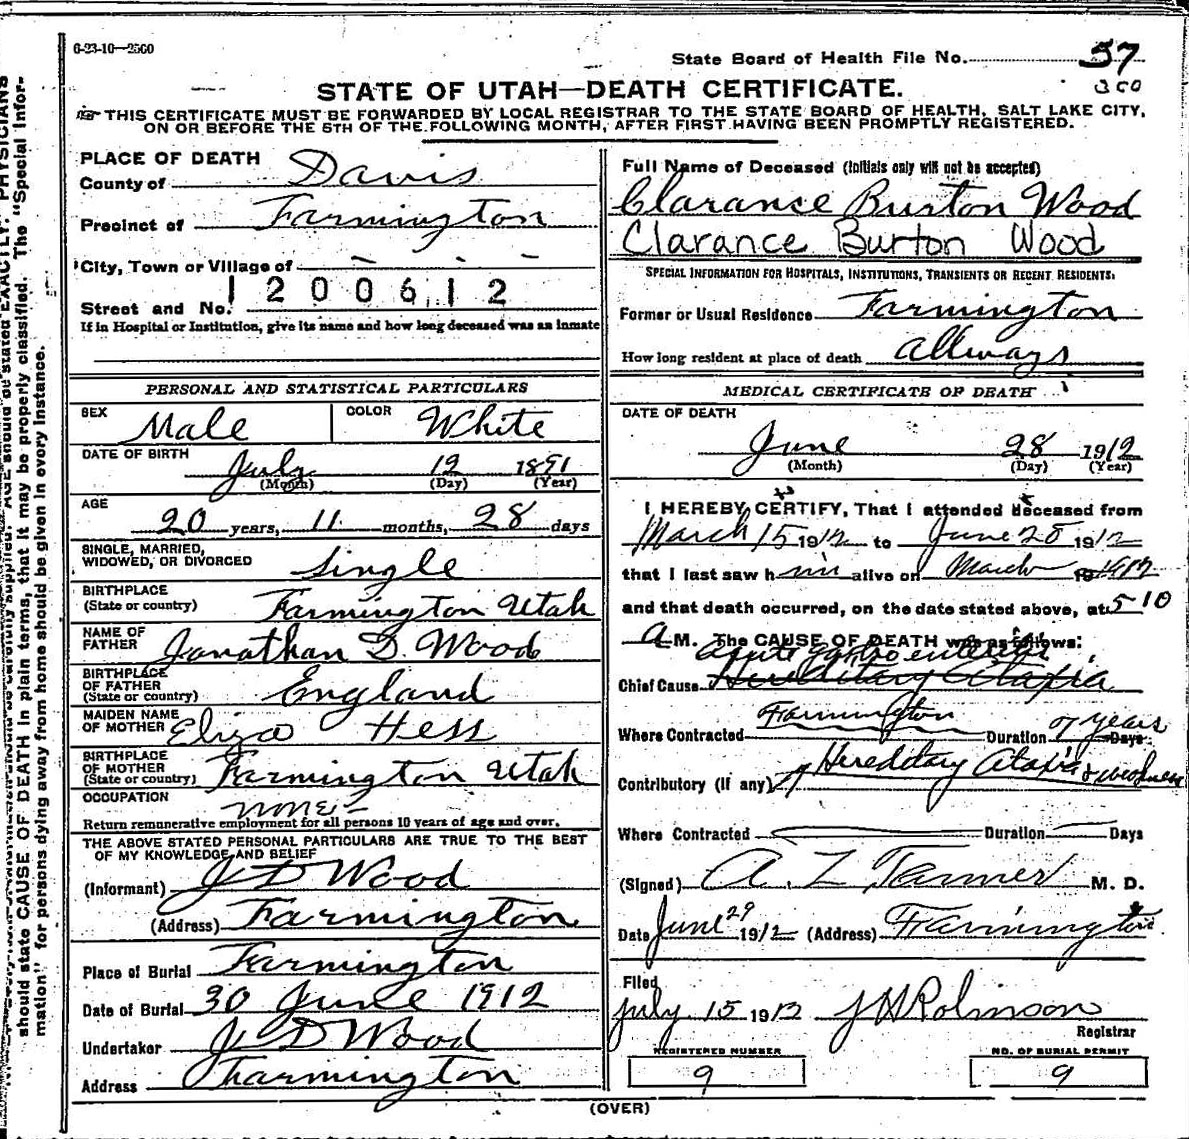 6-23-10—2500
State Board of Health File No. 57
300
STATE OF UTAH—DEATH CERTIFICATE.
THIS CERTIFICATE MUST BE FORWARDED BY LOCAL REGISTRAR TO THE STATE BOARD OF HEALTH, SALT LAKE CITY,
ON OR BEFORE THE 5TH OF THE FOLLOWING MONTH, AFTER FIRST HAVING BEEN PROMPTLY REGISTERED.
PLACE OF DEATH
County of Davis
Precinct of Farmington
City, Town or Village of - - -
1 2 0 0 6 1 2
Street and No.
If in Hospital or Institution, give its name and how long deceased was an inmate
PERSONAL AND STATISTICAL PARTICULARS
SEX Male COLOR White
DATE OF BIRTH
July 12 1891
(Month) (Day) (Year)
AGE
20 years, 11 months, 28 days
SINGLE, MARRIED,
WIDOWED, OR DIVORCED Single
BIRTHPLACE
(State or country) Farmington Utah
NAME OF
FATHER Jonathan D. Wood
BIRTHPLACE
OF FATHER
(State or country) England
MAIDEN NAME
OF MOTHER Eliza Hess
BIRTHPLACE
OF MOTHER
(State or country) Farmington Utah
OCCUPATION
none
Return remunerative employment for all persons 10 years of age and over.
THE ABOVE STATED PERSONAL PARTICULARS ARE TRUE TO THE BEST
OF MY KNOWLEDGE AND BELIEF
(Informant) J D Wood
(Address) Farmington
Place of Burial Farmington
Date of Burial 30 June 1912
Undertaker J D Wood
Address Farmington
Full Name of Deceased (Initials only will not be accepted)
Clarance Burton Wood
Clarance Burton Wood
SPECIAL INFORMATION FOR HOSPITALS, INSTITUTIONS, TRANSIENTS OR RECENT RESIDENTS.
Former or Usual Residence Farmington
How long resident at place of death allways
MEDICAL CERTIFICATE OF DEATH
DATE OF DEATH
June 28 1912
(Month) (Day) (Year)
I HEREBY CERTIFY, That I attended deceased from
March 15 1912 to June 28 1912
that I last saw him alive on March 1912
and that death occurred, on the date stated above, at 5-10
A M. The CAUSE OF DEATH was as follows:
acute gastro enteritis
Chief Cause Hereditary Ataxia
Where Contracted Farmington Duration years Days
Contributory (if any) Hereditary Ataxia & weakness
Where Contracted Duration Days
(Signed) A. Z Tanner M. D.
Date June 29 1912 (Address) Farmington
Filed
July 15 1912 J H Robinson
Registrar
REGISTERED NUMBER
9
NO. OF BURIAL PERMIT
9
(OVER)
should state CAUSE OF DEATH in plain terms, that it may be properly classified. The "Special Infor-
mation" for persons dying away from home should be given in every instance.